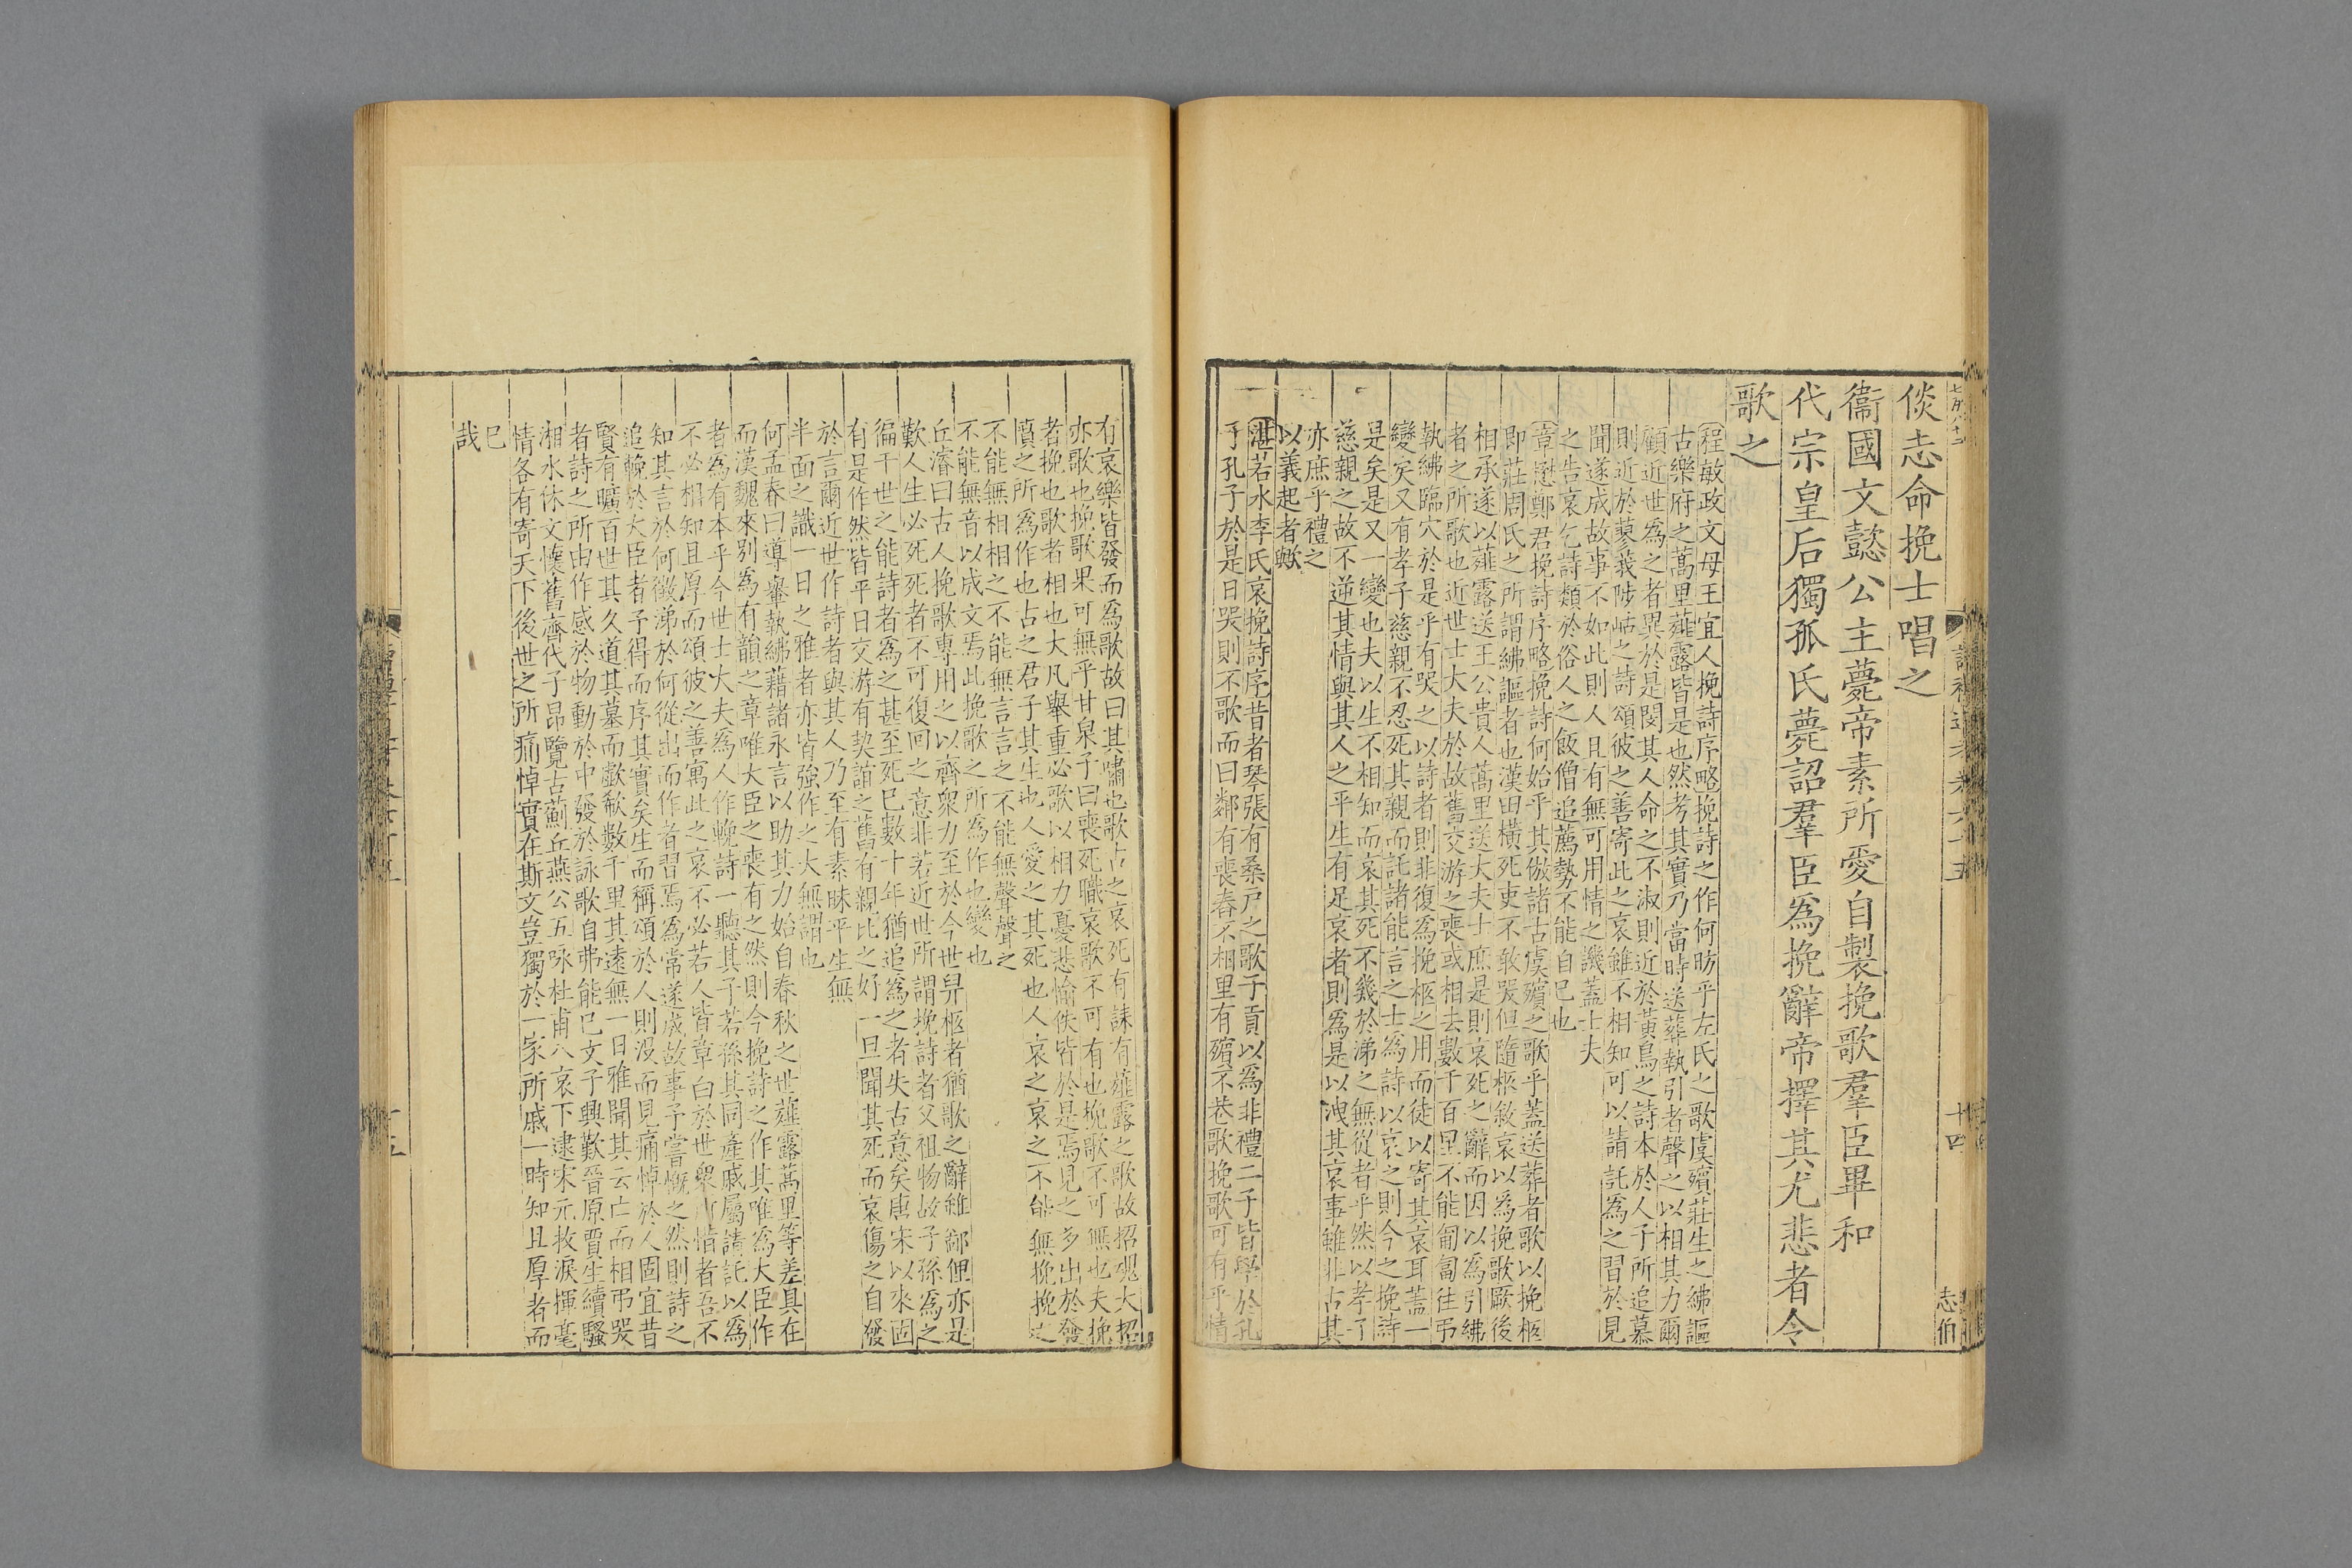 倓志命挽士唱之
衞國文懿公主薨帝素所愛自製挽歌羣臣畢和
代宗皇后獨孤氏薨詔羣臣爲挽辭帝擇其尤悲者令
歌之
程敏政文母王宜人挽詩序略挽詩之作何昉乎左氏之歌虞殯莊生之紼謳
古樂府之蒿里薤露皆是也然考其實乃當時送葬執引者聲之以相其力爾
顧近世爲之者異於是閔其人命之不淑則近於黃鳥之詩本於人子所追慕
則近於蓼莪陟岵之詩頌彼之善寄此之哀雖不相知可以請託爲之習於見
聞遂成故事不如此則人且有無可用情之譏蓋士夫
之告哀乞詩類於俗人之飯僧追薦勢不能自已也
章懋鄭君挽詩序略挽詩何始乎其倣諸古虞殯之歌乎蓋送葬者歌以挽柩
即莊周氏之所謂紼謳者也漢田橫死吏不敢哭但隨柩敘哀以爲挽歌厥後
相承遂以薤露送王公貴人蒿里送大夫士庶是則哀死之辭而因以爲引紼
者之所歌也近世士大夫於故舊交游之喪或相去數千百里不能匍匐往弔
執紼臨穴於是乎有哭之以詩者則非復爲挽柩之用而徒以寄其哀耳蓋一
變矣又有孝子慈親不忍死其親而託諸能言之士爲詩以哀之則今之挽詩
是矣是又一變也夫以生不相知而哀其死不幾於涕之無從者乎然以孝子
慈親之故不逆其情與其人之平生有足哀者則爲是以洩其哀事雖非古其
亦庶乎禮之
以義起者歟
湛若水李氏哀挽詩序昔者琴張有桑戸之歌子貢以爲非禮二子皆學於孔
子孔子於是日哭則不歌而曰鄰有喪舂不相里有殯不巷歌挽歌可有乎情
有哀樂皆發而爲歌故曰其嘯也歌古之哀死有誄有薤露之歌故招魂大招
亦歌也挽歌果可無乎甘泉子曰喪死職哀歌不可有也挽歌不可無也夫挽
者挽也歌者相也大凡舉重必歌以相力憂悲愉佚皆於是焉見之多出於發
憤之所爲作也古之君子其生也人愛之其死也人哀之哀之不能無挽挽之
不能無相相之不能無言言之不能無聲聲之
不能無音以成文焉此挽歌之所爲作也變也
丘濬曰古人挽歌專用之以齊衆力至於今世舁柩者猶歌之辭雖鄙俚亦是
歎人生必死死者不可復回之意非若近世所謂挽詩者父祖物故子孫爲之
徧干世之能詩者爲之甚至死已數十年猶追爲之者失古意矣唐宋以來固
有是作然皆平日交游有契誼之舊有親比之好一旦聞其死而哀傷之自發
於言爾近世作詩者與其人乃至有素昧平生無
半面之識一日之雅者亦皆強作之大無謂也
何孟春曰導轝執紼藉諸永言以助其力始自春秋之世薤露蒿里等差具在
而漢魏來別爲有韻之章唯大臣之喪有之然則今挽詩之作其唯爲大臣作
者爲有本乎今世士大夫爲人作輓詩一聽其子若孫其同產戚屬請託以爲
不必相知且厚而頌彼之善寓此之哀不必若人皆章白於世衆所惜者吾不
知其言於何徵涕於何從出而作者習焉爲常遂成故事予嘗慨之然則詩之
追輓於大臣者予得而序其實矣生而稱頌於人則沒而見痛悼於人固宜昔
賢有曠百世其久道其墓而歔欷數千里其遠無一日雅聞其云亡而相弔哭
者詩之所由作感於物動於中發於詠歌自弗能已文子興歎晉原賈生續騷
湘水休文懷舊齊代子昂覽古薊丘燕公五咏杜甫八哀下逮宋元抆淚揮毫
情各有寄天下後世之所痛悼實在斯文豈獨於一家所戚一時知且厚者而
已
哉